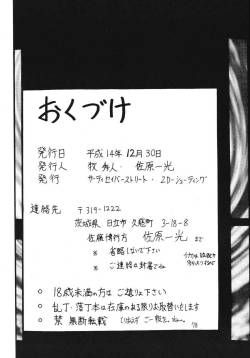 おくづけ
発行日 平成14年12月30日
発行人 牧秀人・佐原一光
発行 サーティセイバーストリート・2Dシューティング
連絡先 〒319-1222
茨城県 日立市 久慈町 3-18-8
佐藤博行方 佐原一光 まで
※ 省略しないで下さい
※ ご連絡は封書でね
○ 18歳未満の方は ご遠りょ下さい
○ 乱丁・落丁本は在庫のある限りお取替いたします
○ 禁 無断転載